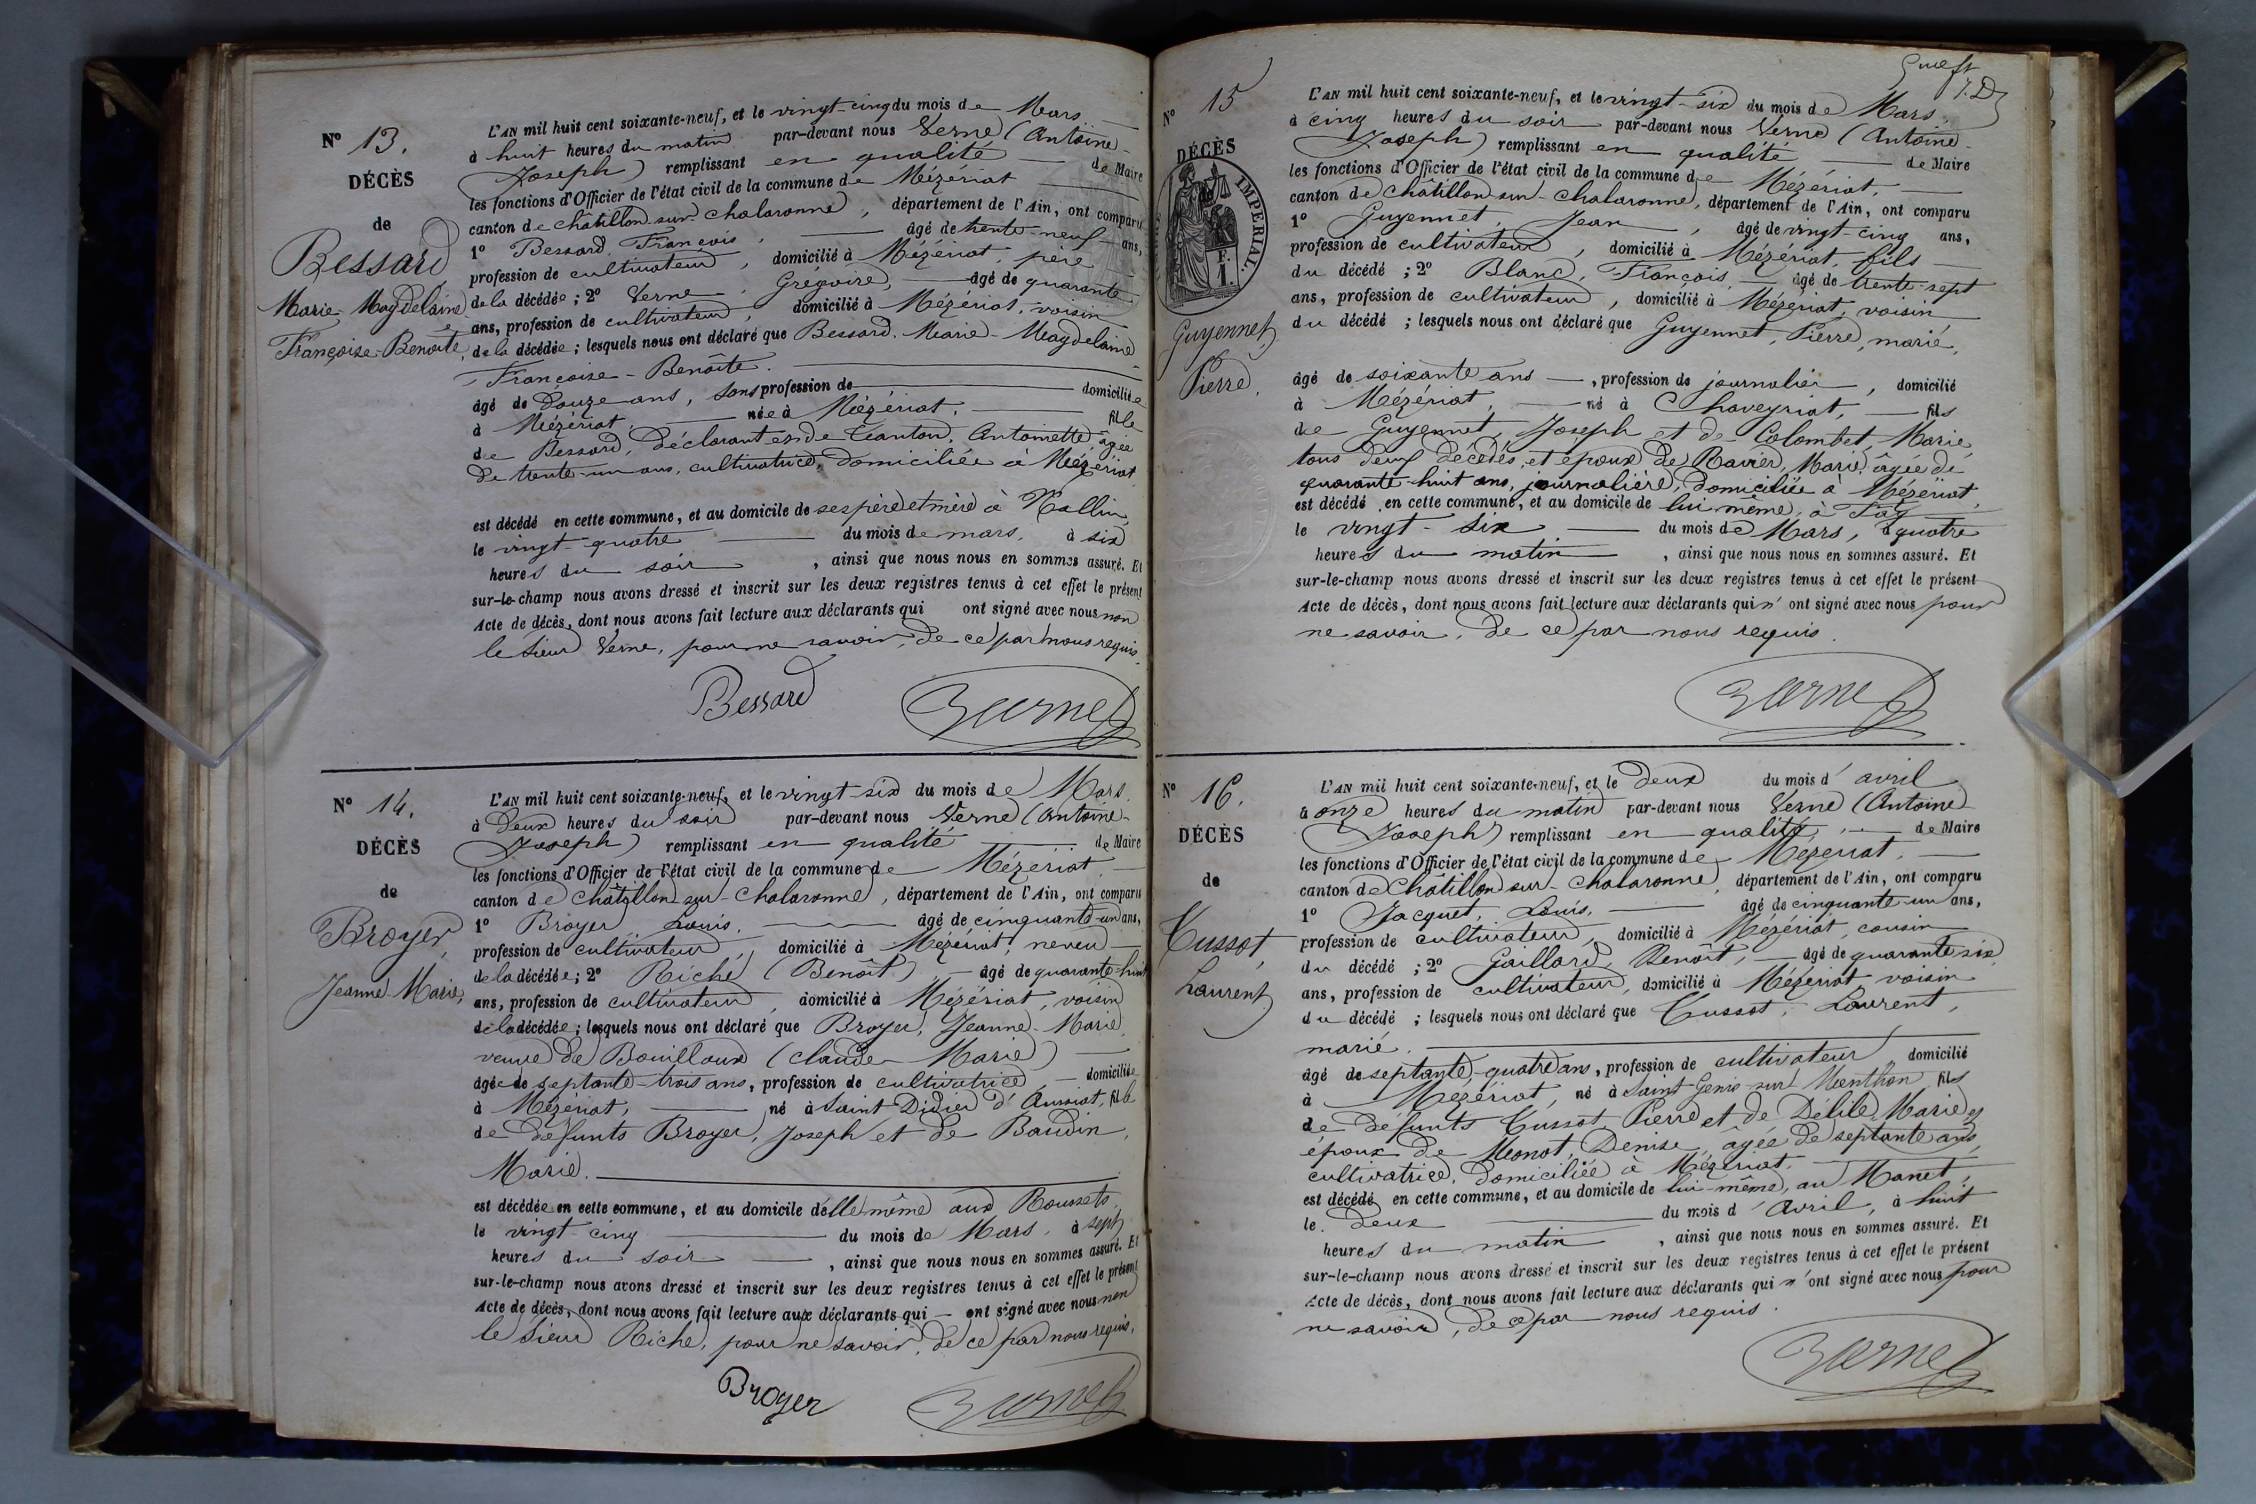 N° 13.
DÉCÈS
de
Bessard
Marie Magdelaine
Françoise-Benoîte
L'AN mil huit cent soixante-neuf, et le vingt-cinq du mois de Mars
à huit heures du matin par-devant nous Verne (Antoine-
Joseph) remplissant en qualité de Maire
les fonctions d'Officier de l'état civil de la commune de Mézériat
canton de Châtillon-sur-Chalaronne, département de l'Ain, ont comparu
1° Bessard, François, âgé de trente-neuf ans,
profession de cultivateur, domicilié à Mézériat, père
de la décédée; 2° Verne, Grégoire, âgé de quarante
ans, profession de cultivateur, domicilié à Mézériat, voisin
de la décédée; lesquels nous ont déclaré que Bessard, Marie-Magdelaine
Françoise-Benoîte.
âgé de douze ans, sans profession de domiciliée
à Mézériat, née à Mézériat, fille
de Bessard, déclarant et de Antoinette âgée
de trente-un ans, cultivatrice, domiciliée à Mézériat
est décédé en cette commune, et au domicile de ses père et mère à
le vingt-quatre du mois de mars, à six
heures du soir, ainsi que nous nous en sommes assuré. Et
sur-le-champ nous avons dressé et inscrit sur les deux registres tenus à cet effet le présent
Acte de décès, dont nous avons fait lecture aux déclarants qui ont signé avec nous non
le sieur Verne, pour ne savoir, de ce par nous requis.
Bessard Verne
N° 14.
DÉCÈS
de
Broyer,
Jeanne-Marie,
L'AN mil huit cent soixante-neuf, et le vingt-six du mois de Mars.
à deux heures du soir par-devant nous Verne (Antoine-
Joseph) remplissant en qualité de Maire
les fonctions d'Officier de l'état civil de la commune de Mézériat
canton de Châtillon-sur-Chalaronne, département de l'Ain, ont comparu
1° Broyer Louis, âgé de cinquante-un ans,
profession de cultivateur, domicilié à Mézériat, neveu
de la décédée; 2° Riche (Benoît), âgé de quarante-huit
ans, profession de cultivateur, domicilié à Mézériat, voisin
de la décédée; lesquels nous ont déclaré que Broyer, Jeanne-Marie
veuve de Bouilloux (Claude-Marie)
âgée de septante-trois ans, profession de cultivatrice, domiciliée
à Mézériat, né à Saint Didier d'Aussiat, fille
de défunts Broyer, Joseph et de Baudin,
Marie.
est décédée en cette commune, et au domicile d'elle même aux Roussets,
le vingt-cinq du mois de Mars, à sept
heures du soir, ainsi que nous nous en sommes assuré. Et
sur-le-champ nous avons dressé et inscrit sur les deux registres tenus à cet effet le présent
Acte de décès, dont nous avons fait lecture aux déclarants qui ont signé avec nous non
le sieur Riche, pour ne savoir, de ce par nous requis.
Broyer Verne
N° 15
DÉCÈS
de
IMPERIAL.
F.
1.
Guyennet,
Pierre.
L'AN mil huit cent soixante-neuf, et le vingt-six du mois de Mars,
à cinq heures du soir par-devant nous Verne (Antoine-
Joseph) remplissant en qualité de Maire
les fonctions d'Officier de l'état civil de la commune de Mézériat,
canton de Châtillon-sur-Chalaronne, département de l'Ain, ont comparu
1° Guyennet, Jean, âgé de vingt-cinq ans,
profession de cultivateur, domicilié à Mézériat fils
du décédé; 2° Blanc, François, âgé de trente-sept
ans, profession de cultivateur, domicilié à Mézériat, voisin
du décédé; lesquels nous ont déclaré que Guyennet, Pierre, marié,
âgé de soixante ans, profession de journalier, domicilié
à Mézériat, né à Chaveyriat, fils
de Guyennet, Joseph et de Colombet, Marie
tous deux décédés, et époux de Ravier, Marie, âgée de
quarante-huit ans, journalière, domiciliée à Mézériat.
est décédé en cette commune, et au domicile de lui même, à
le vingt-six du mois de Mars, à quatre
heures du matin, ainsi que nous nous en sommes assuré. Et
sur-le-champ nous avons dressé et inscrit sur les deux registres tenus à cet effet le présent
Acte de décès, dont nous avons fait lecture aux déclarants qui n'ont signé avec nous pour
ne savoir, de ce par nous requis.
Verne
N° 16.
DÉCÈS
de
Tussot,
Laurent,
L'AN mil huit cent soixante-neuf, et le deux du mois d'avril
à onze heures du matin par-devant nous Verne (Antoine-
Joseph) remplissant en qualité, de Maire
les fonctions d'Officier de l'état civil de la commune de Mézériat,
canton de Châtillon-sur-Chalaronne, département de l'Ain, ont comparu
1° Jacquet, Louis, âgé de cinquante-un ans,
profession de cultivateur, domicilié à Mézériat, cousin
du décédé; 2° Gaillard, Benoît, âgé de quarante-six
ans, profession de cultivateur, domicilié à Mézériat, voisin
du décédé; lesquels nous ont déclaré que Tussot, Laurent,
marié.
âgé de septante-quatre ans, profession de cultivateur, domicilié
à Mézériat, né à Saint-Genis-sur-Menthon, fils
de défunts Tussot, Pierre et de Délile, Marie,
époux de Monot, Denise, âgée de septante ans,
cultivatrice, domiciliée à Mézériat.
est décédé en cette commune, et au domicile de lui-même, au Manet,
le deux du mois d'avril, à huit
heures du matin, ainsi que nous nous en sommes assuré. Et
sur-le-champ nous avons dressé et inscrit sur les deux registres tenus à cet effet le présent
Acte de décès, dont nous avons fait lecture aux déclarants qui n'ont signé avec nous pour
ne savoir, de ce par nous requis.
Verne